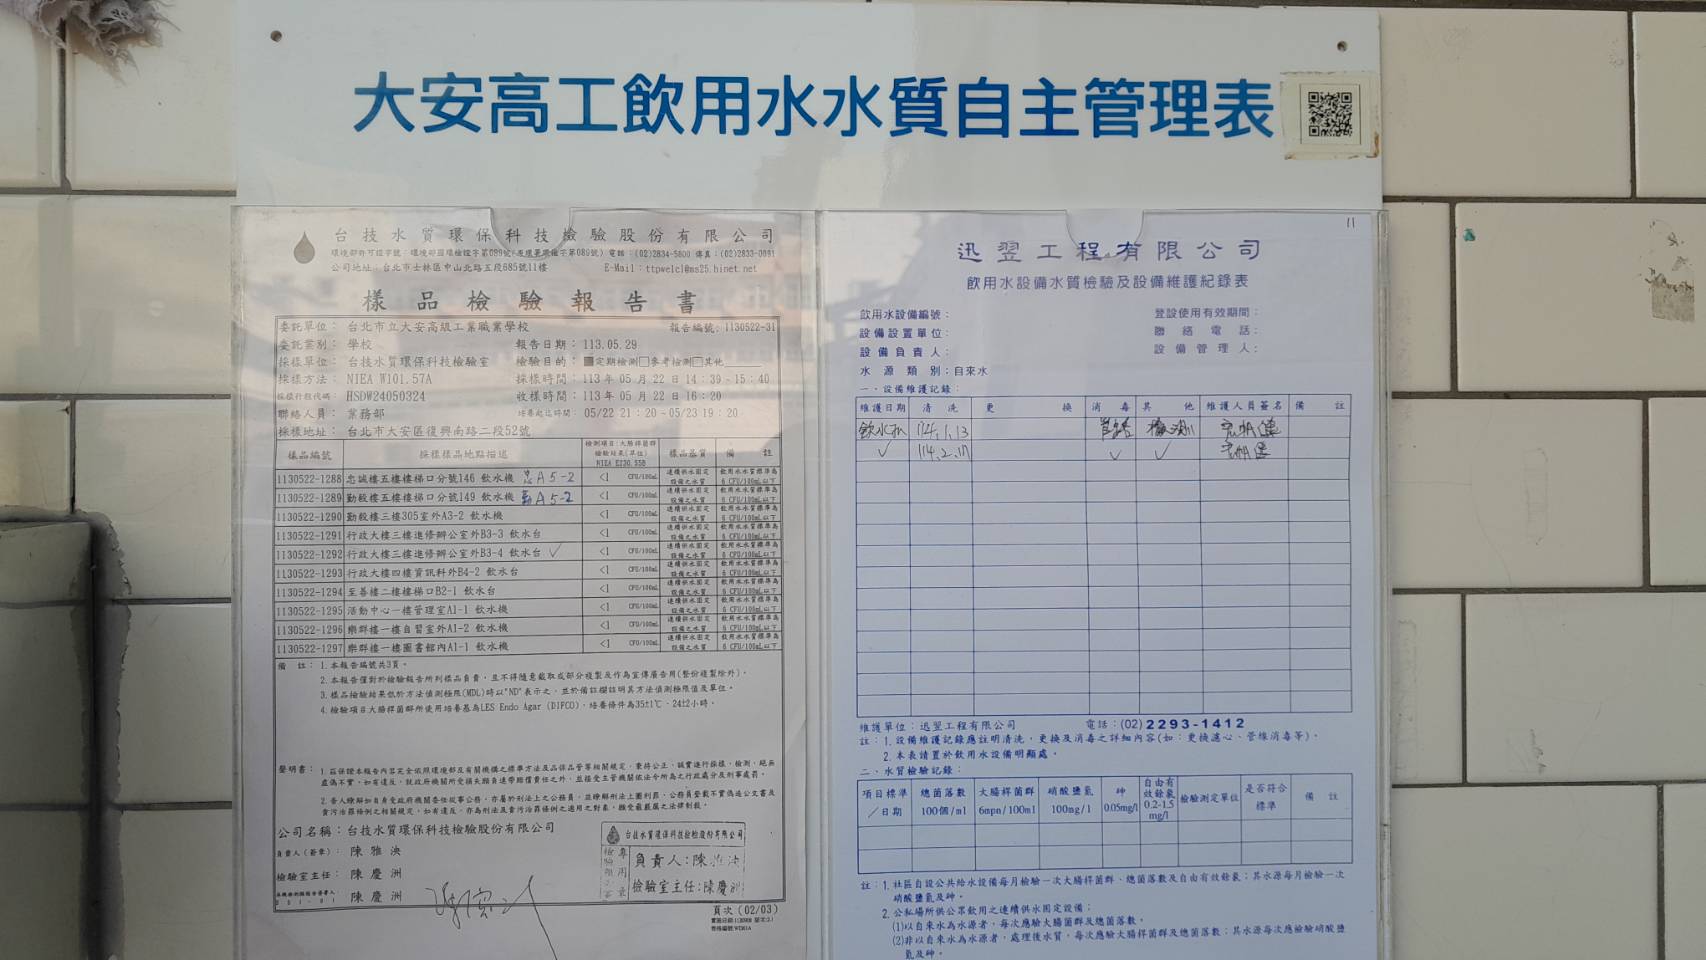 大安高工飲用水水質自主管理表
台技水質環保科技檢驗股份有限公司
公司地址：台北市士林區中山北路五段685號11樓 E-Mail：ttpwelcl@ms25.hinet.net
樣品檢驗報告書
委託單位：台北市立大安高級工業職業學校 報告編號：1130522-31
委託業別：學校 報告日期：113.05.29
採樣單位：台技水質環保科技檢驗室 檢驗目的：■定期檢測□參考檢測□其他
採樣方法：NIEA W101.57A 採樣時間：113 年 05 月 22 日 14：39-15：40
採樣行程代碼：HSDW24050324 收樣時間：113 年 05 月 22 日 16：20
聯絡人員：業務部 培養起迄時間：05/22 21：20-05/23 19：20
採樣地址：台北市大安區復興南路二段52號
樣品編號 採樣樣品地點描述 檢測項目:大腸桿菌群 檢驗結果(單位) NIEA E230.55B 樣品基質 備註
1130522-1288 忠誠樓五樓樓梯口分號146 飲水機 忠A5-2 <1 CFU/100mL 連續供水固定設備之水質 飲用水水質標準為 6 CFU/100mL以下
1130522-1289 勤毅樓五樓樓梯口分號149 飲水機 勤A5-2 <1 CFU/100mL 連續供水固定設備之水質 飲用水水質標準為 6 CFU/100mL以下
1130522-1290 勤毅樓三樓305室外A3-2 飲水機 <1 CFU/100mL 連續供水固定設備之水質 飲用水水質標準為 6 CFU/100mL以下
1130522-1291 行政大樓三樓進修辦公室外B3-3 飲水台 <1 CFU/100mL 連續供水固定設備之水質 飲用水水質標準為 6 CFU/100mL以下
1130522-1292 行政大樓三樓進修辦公室外B3-4 飲水台 ✓ <1 CFU/100mL 連續供水固定設備之水質 飲用水水質標準為 6 CFU/100mL以下
1130522-1293 行政大樓四樓資訊科外B4-2 飲水台 <1 CFU/100mL 連續供水固定設備之水質 飲用水水質標準為 6 CFU/100mL以下
1130522-1294 至善樓二樓樓梯口B2-1 飲水台 <1 CFU/100mL 連續供水固定設備之水質 飲用水水質標準為 6 CFU/100mL以下
1130522-1295 活動中心一樓管理室A1-1 飲水機 <1 CFU/100mL 連續供水固定設備之水質 飲用水水質標準為 6 CFU/100mL以下
1130522-1296 樂群樓一樓自習室外A1-2 飲水機 <1 CFU/100mL 連續供水固定設備之水質 飲用水水質標準為 6 CFU/100mL以下
1130522-1297 樂群樓一樓圖書館內A1-1 飲水機 <1 CFU/100mL 連續供水固定設備之水質 飲用水水質標準為 6 CFU/100mL以下
備註：1.本報告編號共3頁。
2.本報告僅對於檢驗報告所列樣品負責，且不得隨意截取或部分複製及作為宣傳廣告用(整份複製除外)。
3.樣品檢驗結果低於方法偵測極限(MDL)時以"ND"表示之，並於備註欄註明其方法偵測極限值及單位。
4.檢驗項目大腸桿菌群所使用培養基為LES Endo Agar (DIFCO)，培養條件為35±1℃，24±2小時。
聲明書：1.茲保證本報告內容完全依照環境部及有關機構之標準方法及品保品管等相關規定，秉持公正、誠實進行採樣、檢測，絕無
虛偽不實，如有違反，就政府機關所受損失願負連帶賠償責任之外，並接受主管機關依法令所為之行政處分及刑事處罰。
2.吾人瞭解如自身受政府機關委任從事公務，亦屬於刑法上之公務員，並瞭解刑法上圖利罪、公務員登載不實偽造公文書及
貪污治罪條例之相關規定，如有違反，亦為刑法及貪污治罪條例之適用之對象，願受最嚴厲之法律制裁。
公司名稱：台技水質環保科技檢驗股份有限公司
負責人(簽章)：陳雅泱
檢驗室主任：陳慶洲
陳慶洲
台技水質環保科技檢驗股份有限公司
負責人:陳雅泱
檢驗室主任:陳慶洲
頁次 (02/03)
11
迅翌工程有限公司
飲用水設備水質檢驗及設備維護紀錄表
飲用水設備編號： 登設使用有效期間：
設備設置單位： 聯絡電話：
設備負責人： 設備管理人：
水源類別：自來水
一、設備維護記錄：
維護日期 清洗 更換 消毒 其他 維護人員簽名 備註
飲水機 114.1.13 檢測
✓ 114.2.17 ✓ ✓
維護單位：迅翌工程有限公司 電話：(02) 2293-1412
註：1.設備維護記錄應註明清洗，更換及消毒之詳細內容(如：更換濾心、管線消毒等)。
2.本表請置於飲用水設備明顯處。
二、水質檢驗記錄：
項目標準／日期 總菌落數 100個/ml 大腸桿菌群 6mpn/100ml 硝酸鹽氮 100mg/l 砷 0.05mg/l 自由有效餘氯 0.2-1.5 mg/l 檢驗測定單位 是否符合標準 備註
註：1.社區自設公共給水設備每月檢驗一次大腸桿菌群、總菌落數及自由有效餘氯；其水源每月檢驗一次
硝酸鹽氮及砷。
2.公私場所供公眾飲用之連續供水固定設備：
(1)以自來水為水源者，每次應驗大腸菌群及總菌落數。
(2)非以自來水為水源者，處理後水質，每次應驗大腸桿菌群及總菌落數；其水源每次應檢驗硝酸鹽
氮及砷。